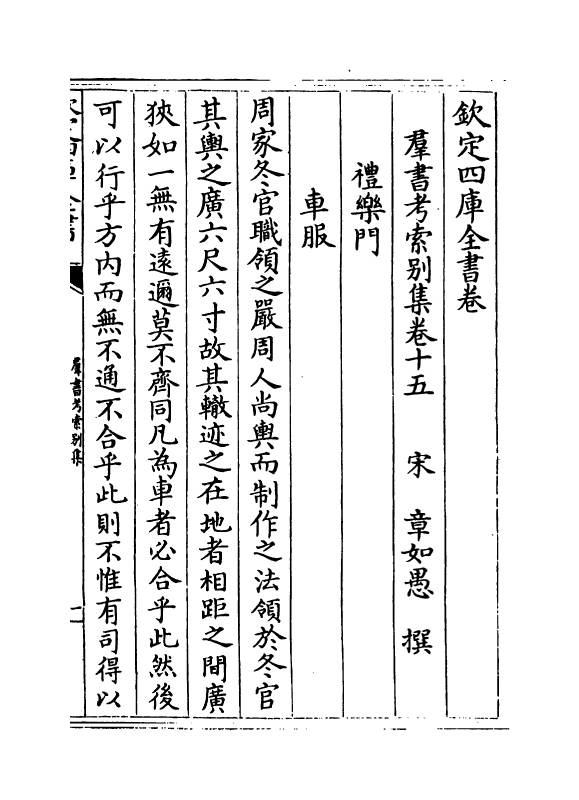 欽定四庫全書卷
羣書考索别集卷十五 宋 章如愚 撰
禮樂門
車服
周家冬官職領之嚴周人尚輿而制作之法領於冬官
其輿之廣六尺六寸故其轍迹之在地者相距之間廣
狹如一無有遠邇莫不齊同凡為車者必合乎此然後
可以行乎方内而無不通不合乎此則不惟有司得以
羣書考索别集